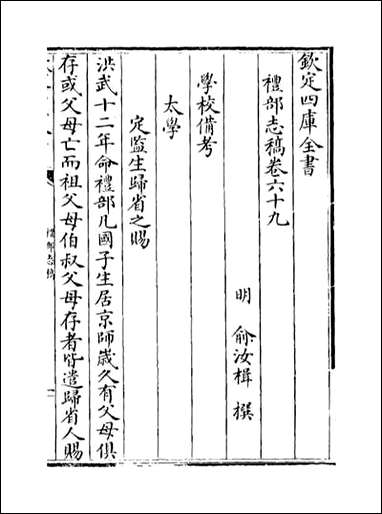 欽定四庫全書
禮部志稿卷六十九
明 俞汝楫 撰
學校備考
太學
定監生歸省之賜
洪武十二年命禮部凡國子生居京師歲久有父母俱
存或父母亡而祖父母伯叔父母存者皆遣歸省人賜
禮部志稿